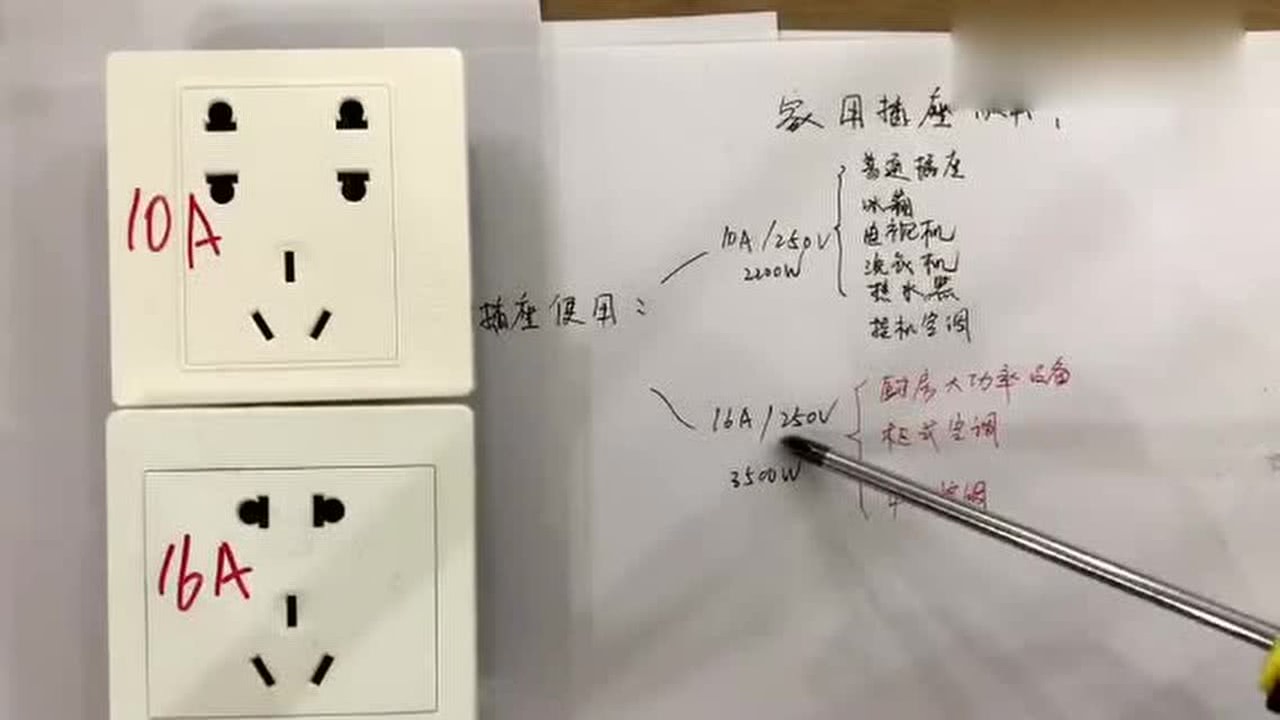 10A
16A
家用插座
插座使用：
10A/250V
2200W
普通插座
冰箱
电视机
洗衣机
热水器
挂机空调
16A/250V
3500W
厨房大功率设备
柜式空调
空调